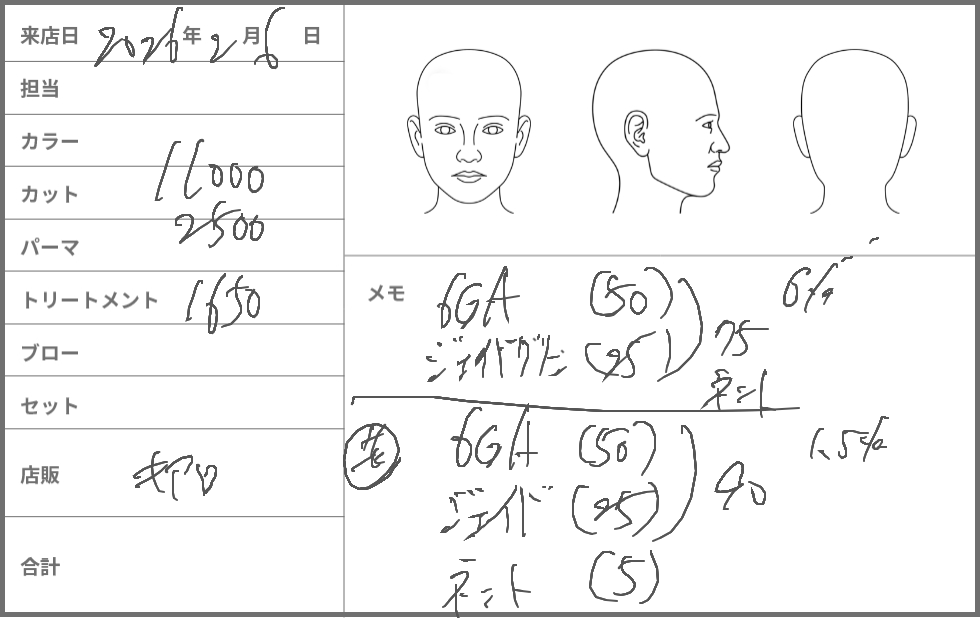 来店日 2026年2月6日
担当
カラー 11000
カット
2500
パーマ
トリートメント 1650
ブロー
セット
店販
合計
メモ
6GA (50) 6%
ジェイド (25) 75
6GA (50) 1.5%
ジェイド (25) 90
(5)